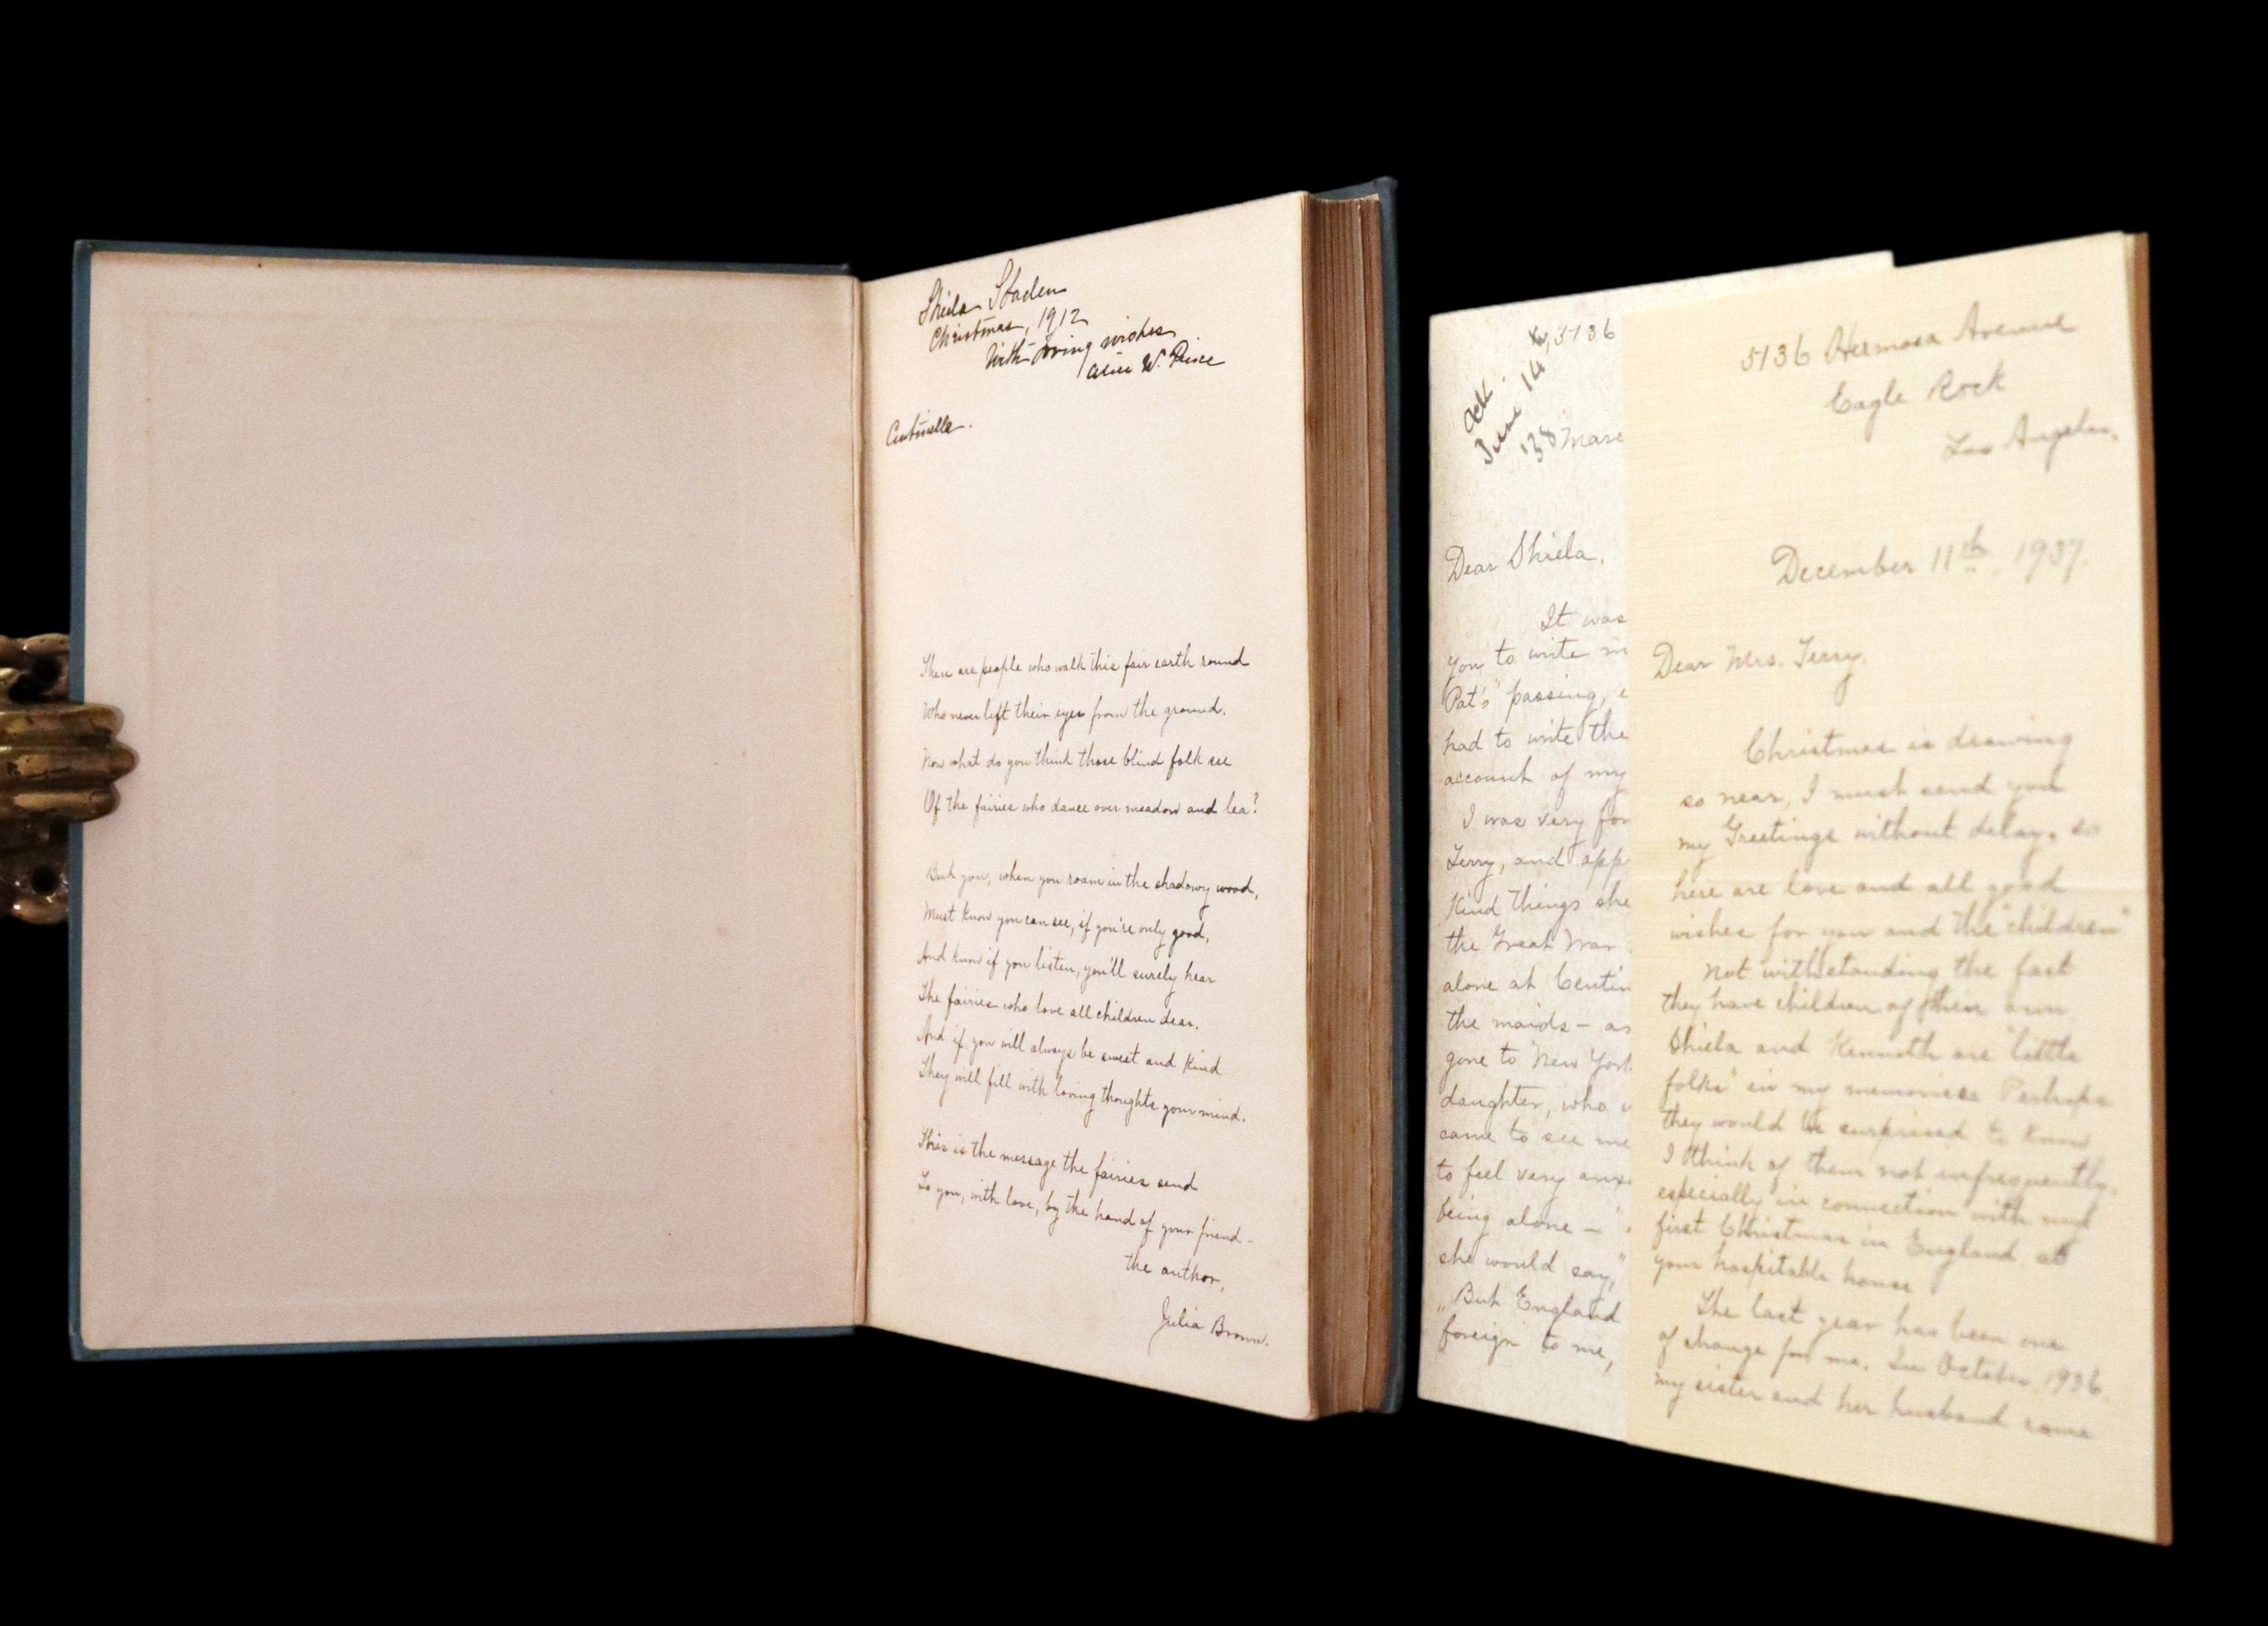 Sheila Staden
Christmas, 1912
With loving wishes
Alice W. Pirie
Centinelle.
There are people who walk this fair earth round
Who never lift their eyes from the ground.
Now what do you think those blind folk see
Of the fairies who dance over meadow and lea?
But you, when you roam in the shadowy wood,
Must know you can see, if you're only good,
And know if you listen, you'll surely hear
The fairies who love all children dear.
And if you will always be sweet and kind
They will fill with loving thoughts your mind.
This is the message the fairies send
To you, with love, by the hand of your friend -
the author,
Julia Brown.
Ack.
June 14th
'38
5136
Mare
Dear Shiela,
It was
you to write
Pat's" passing,
had to write the
account of my
I was very for
Terry, and app
kind things she
the Great War
alone at Centin
the maids - as
gone to New York
daughter, who
came to see me
to feel very anx
being alone - "
she would say,"
"But England
foreign" to me,
5136 Hermosa Avenue
Eagle Rock
Los Angeles,
December 11th, 1937.
Dear Mrs. Terry,
Christmas is drawing
so near, I must send you
my Greetings without delay. so
here are love and all good
wishes for you and the "children"
Not withstanding the fact
they have children of their own
Shiela and Kenneth are "little
folks" in my memories Perhaps
they would be surprised to know
I think of them not infrequently,
especially in connection with my
first Christmas in England at
your hospitable house
The last year has been one
of change for me. In October, 1936
my sister and her husband came